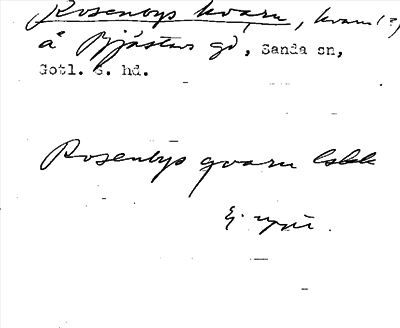 Rosenbys kvarn, kvarn(?)
å Bjästavs gd, Sanda sn,
Gotl. S. hd.
Rosenbys qvarn
Ej upp